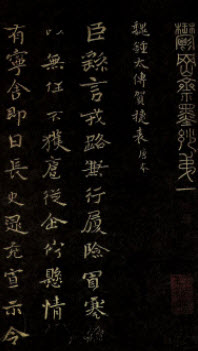 鬱岡齋墨妙第一
魏鍾太傅賀捷表 唐本
臣繇言戎路兼行履險冒寒臣
以無任不獲扈從企佇懸情
有寧舍即日長史逯充宣示令